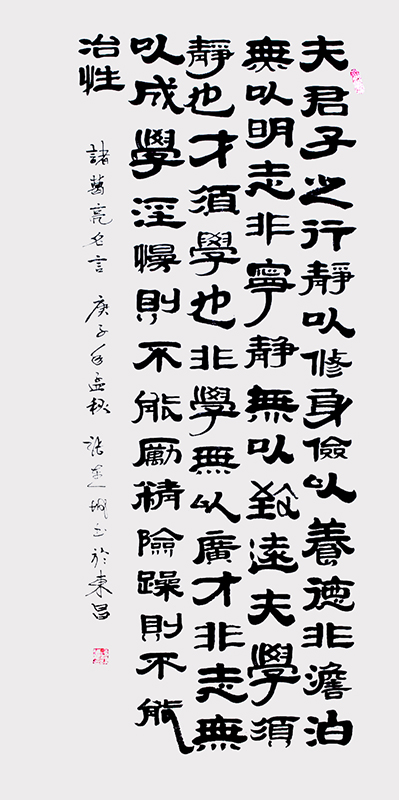 夫君子之行靜以修身儉以養德非澹泊
無以明志非寧靜無以致遠夫學須
靜也才須學也非學無以廣才非志無
以成學淫慢則不能勵精險躁則不能
冶性
諸葛亮名言 庚子年孟秋 張連城書於東昌